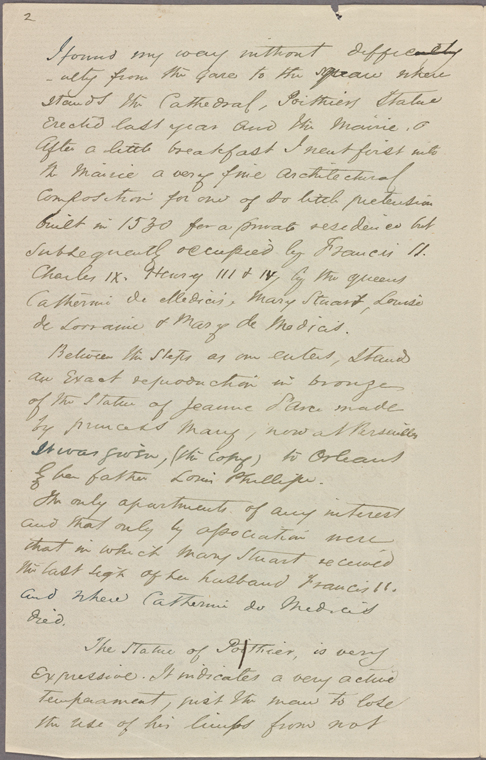 2
I found my way without difficulty
-ulty from the gare to the square where
stands the Cathedral, Poithiers statue
erected last year and the Mairie.
After a little breakfast I went first into
the Mairie a very fine architectural
composition for one of so little pretension
built in 1530 for a private residence but
subsequently occupied by Francis II.
Charles IX. Henry III & IV, by the queens
Catherine de Medicis, Mary Stuart, Louise
de Lorraine & Mary de Medicis.
Between the steps as one enters, stands
an exact reproduction in bronze
of the statue of Jeanne d'Arc made
by princess Mary, now at Versailles
It was given, (the copy) to Orleans
by her father Louis Phillipe.
The only apartments of any interest
and that only by association were
that in which Mary Stuart received
the last sigh of her husband Francis II.
and where Catherine de Medicis
died.
The statue of Pothier, is very
expressive. It indicates a very active
temperament, just the man to lose
the use of his limbs from not